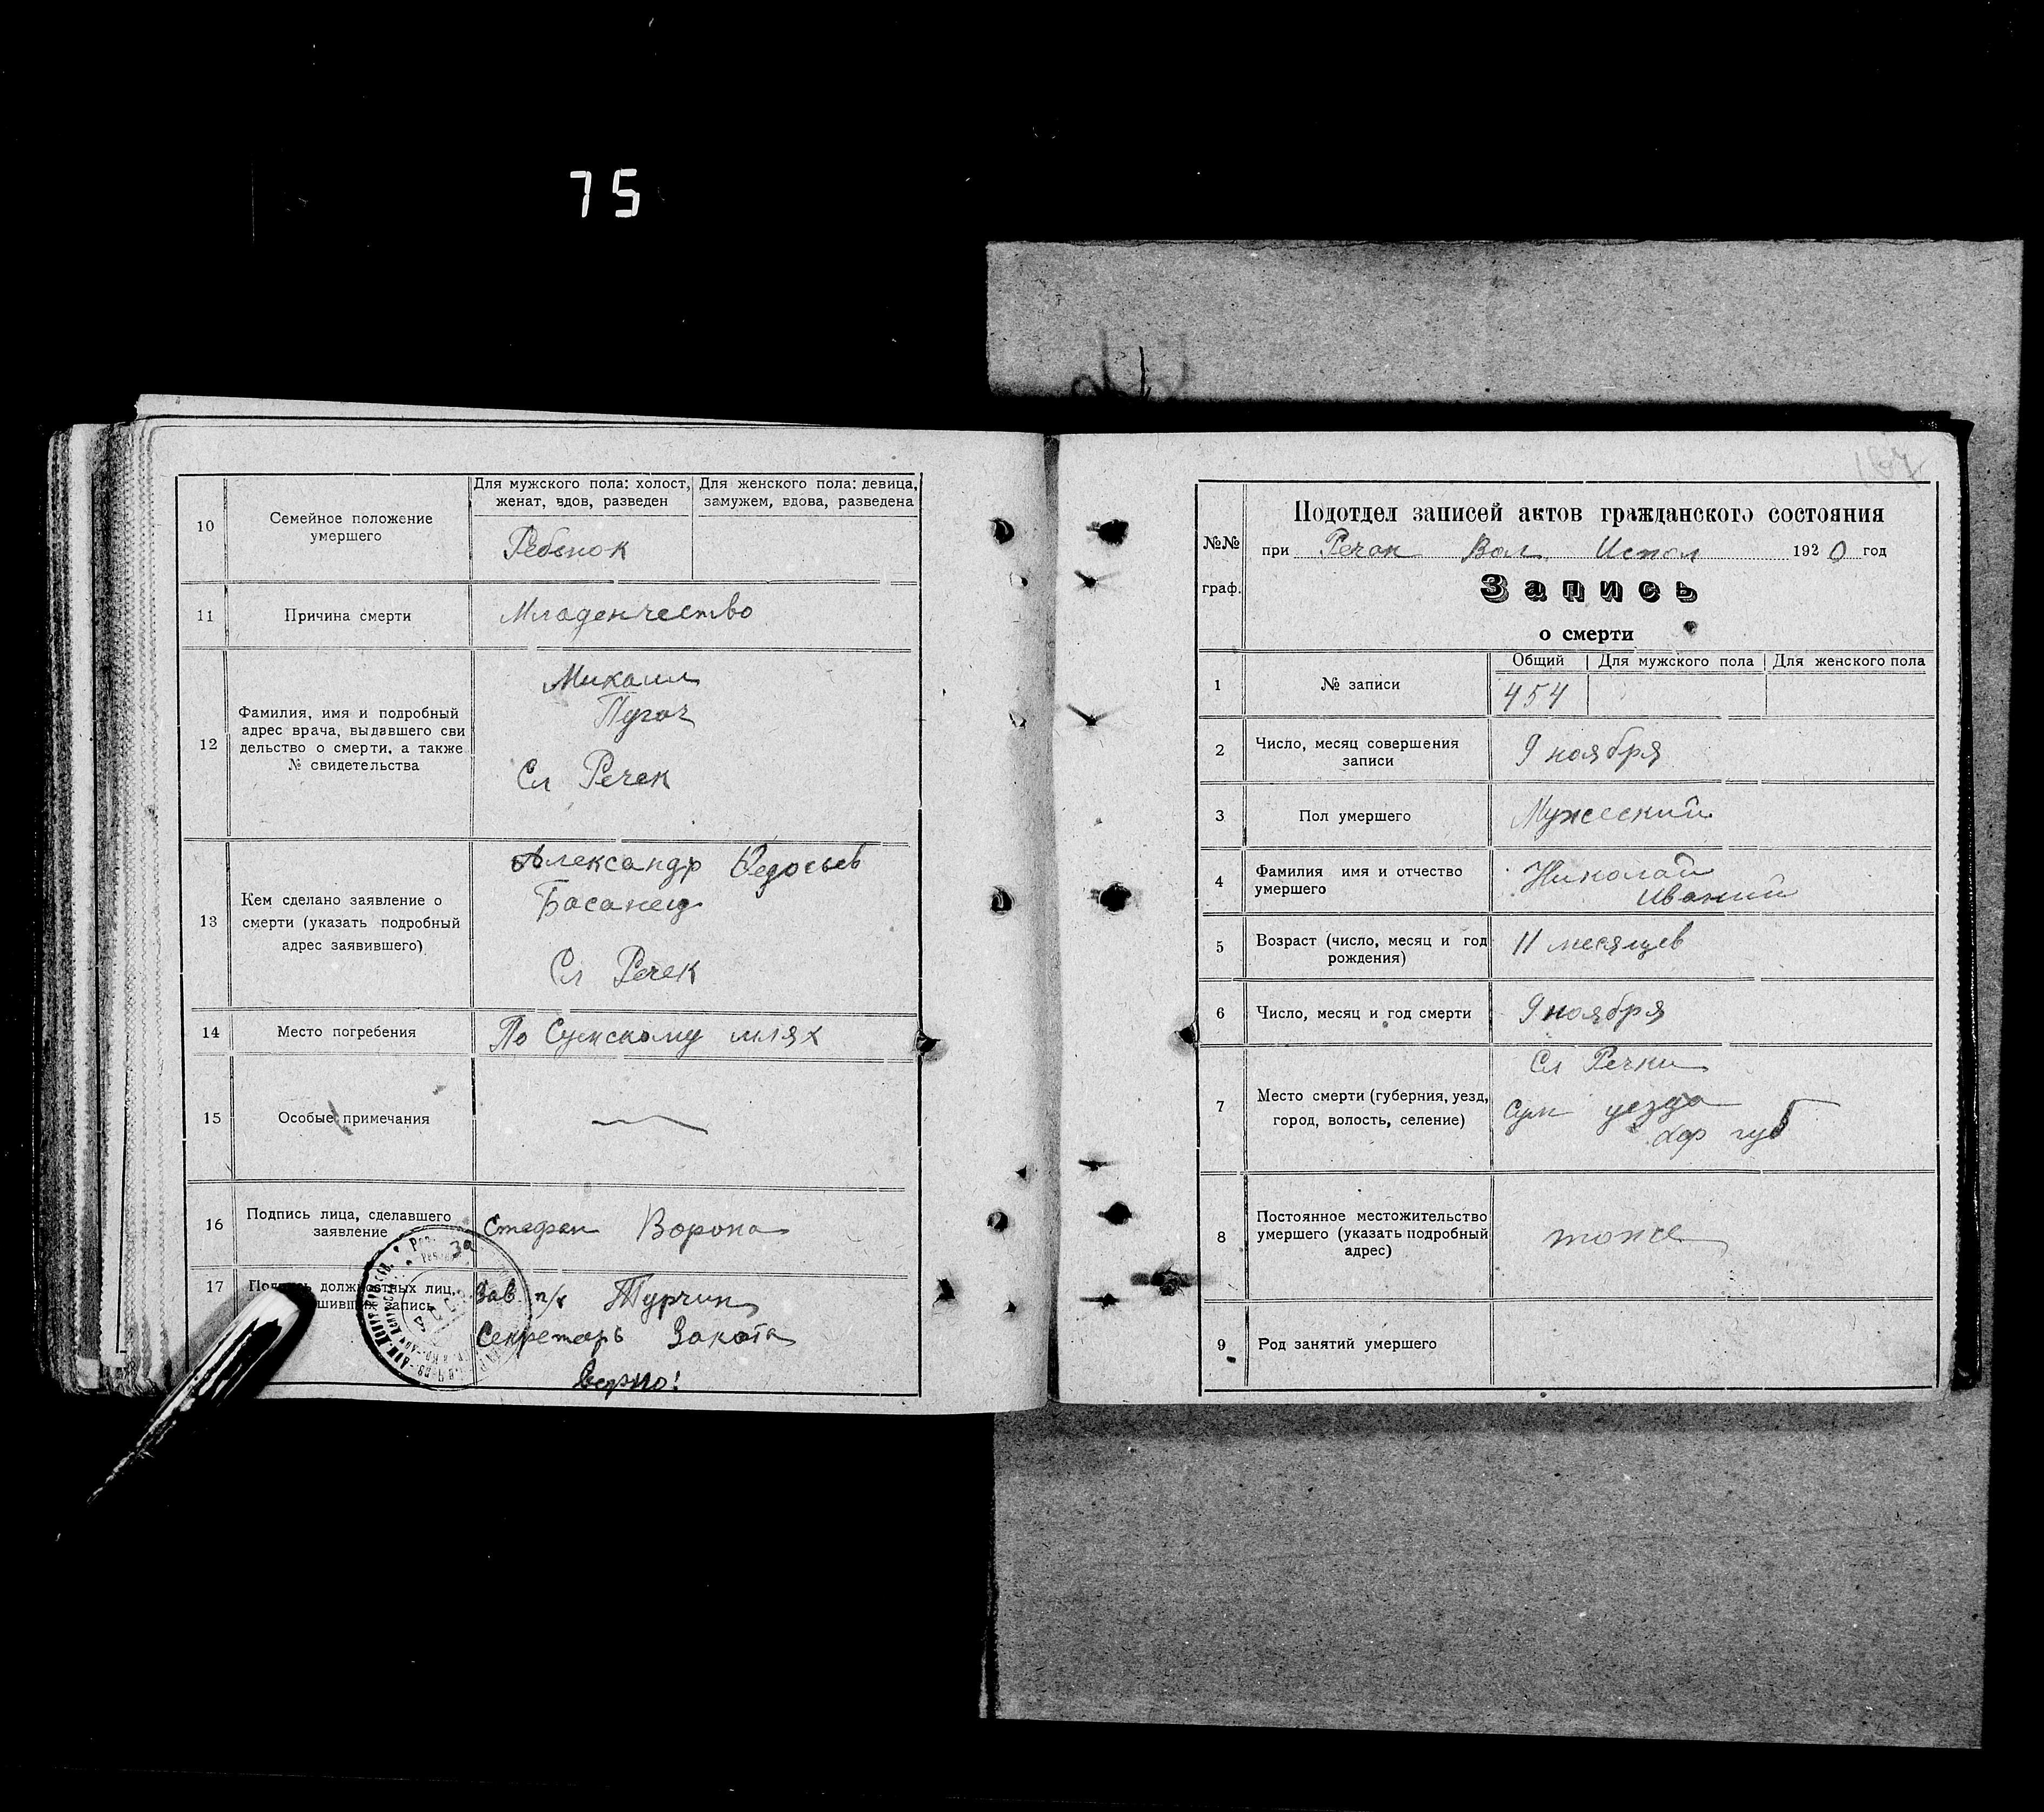 75
10
Семейное положение
умершего
Для мужского пола: холост,
женат, вдов, разведен
Для женского пола: девица,
замужем, вдова, разведена
Ребенок
11
Причина смерти
Младенчество
12
Фамилия, имя и подробный
адрес врача, выдавшего сви
дельство о смерти, а также
№ свидетельства
Михаил
Пугач
Сл Речек
13
Кем сделано заявление о
смерти (указать подробный
адрес заявившего)
Александр Федосьев
Басанец
Сл Речек
14
Место погребения
По Сумскому шлях
15
Особые примечания
16
Подпись лица, сделавшего
заявление
Стефан Ворона
17
должностных лиц,
запись
Зав п/
Турчин
Секретарь
Верно!
167
№№
граф.
Подотдел записей актов гражданского состояния
при Речан Вол Испол 1920 год
Запись
о смерти
1
№ записи
Общий
Для мужского пола
Для женского пола
454
2
Число, месяц совершения
записи
9 ноября
3
Пол умершего
Мужеский
4
Фамилия имя и отчество
умершего
Николай
5
Возраст (число, месяц и год
рождения)
11 месяцев
6
Число, месяц и год смерти
9 ноября
7
Место смерти (губерния, уезд,
город, волость, селение)
Сл Речки
Сум уезда
Хар губ
8
Постоянное местожительство
умершего (указать подробный
адрес)
тоже
9
Род занятий умершего